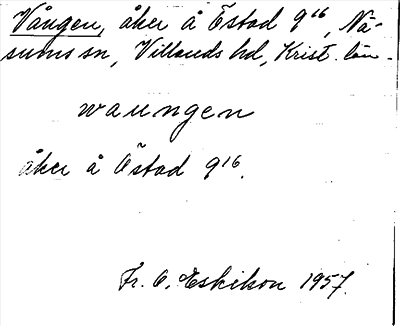 Vången, åker å Östad 9¹⁶, Nä-
sums sn, Villands hd, Krist. län.
waungen
åker å Östad 9¹⁶.
Fr. O. Eskilson 1957.